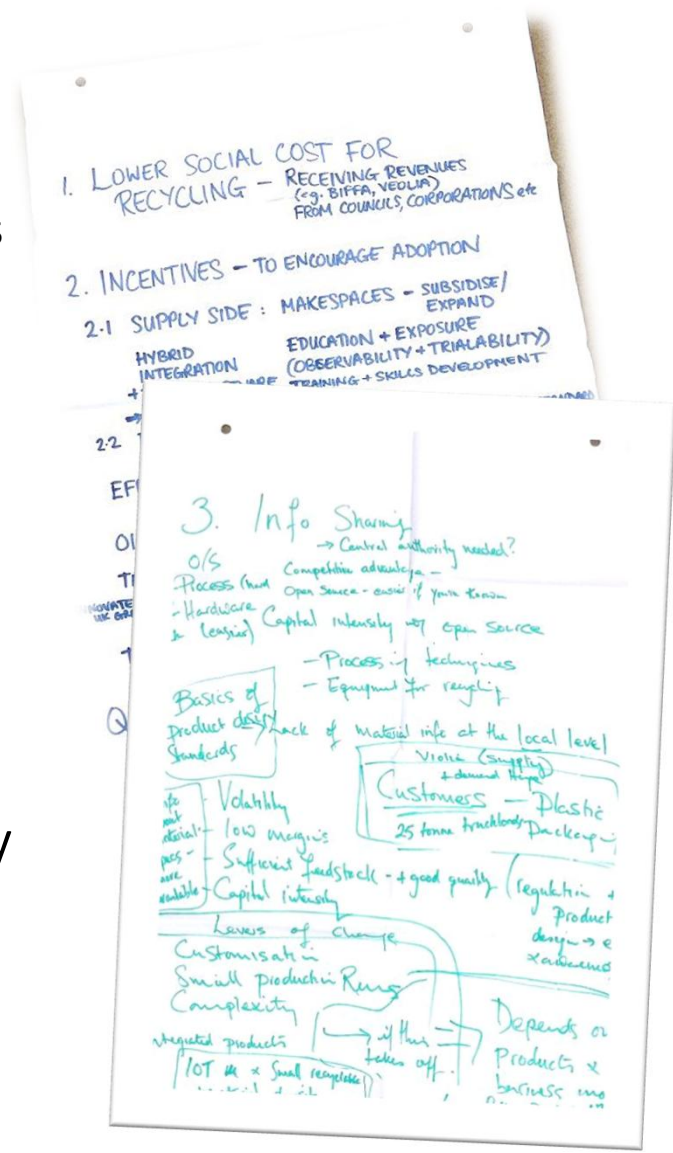 s
1. LOWER SOCIAL COST FOR
RECYCLING – RECEIVING REVENUES
(eg. BIFFA, VEOLIA)
FROM COUNCILS, CORPORATIONS etc
2. INCENTIVES – TO ENCOURAGE ADOPTION
2.1 SUPPLY SIDE : MAKESPACES – SUBSIDISE/
EXPAND
HYBRID
INTEGRATION
EDUCATION + EXPOSURE
(OBSERVABILITY + TRIALABILITY)
TRAINING + SKILLS DEVELOPMENT
+
2.2
EFF
UK
Q
y
3. Info Sharing
→ Central authority needed?
O/S
Competitive advantage –
- Process (hard
Open Source - easier if you're known
- Hardware
(easier) Capital intensity of open source
– Processing techniques
– Equipment for recycling
Basics of
product design
Standards
Lack of material info at the local level
(supply)
+ demand
Customers – Plastic
25 tonne truckloads
- Volatility
- low margins
- Sufficient feedstock - + good quality
- Capital intensity
(regulation +
Product
design → e
Levers of Change
Customisation
Small production Runs
Complexity
integrated products
→ if this
takes off.
Depends on
products &
business mo
IOT x Small recyclable